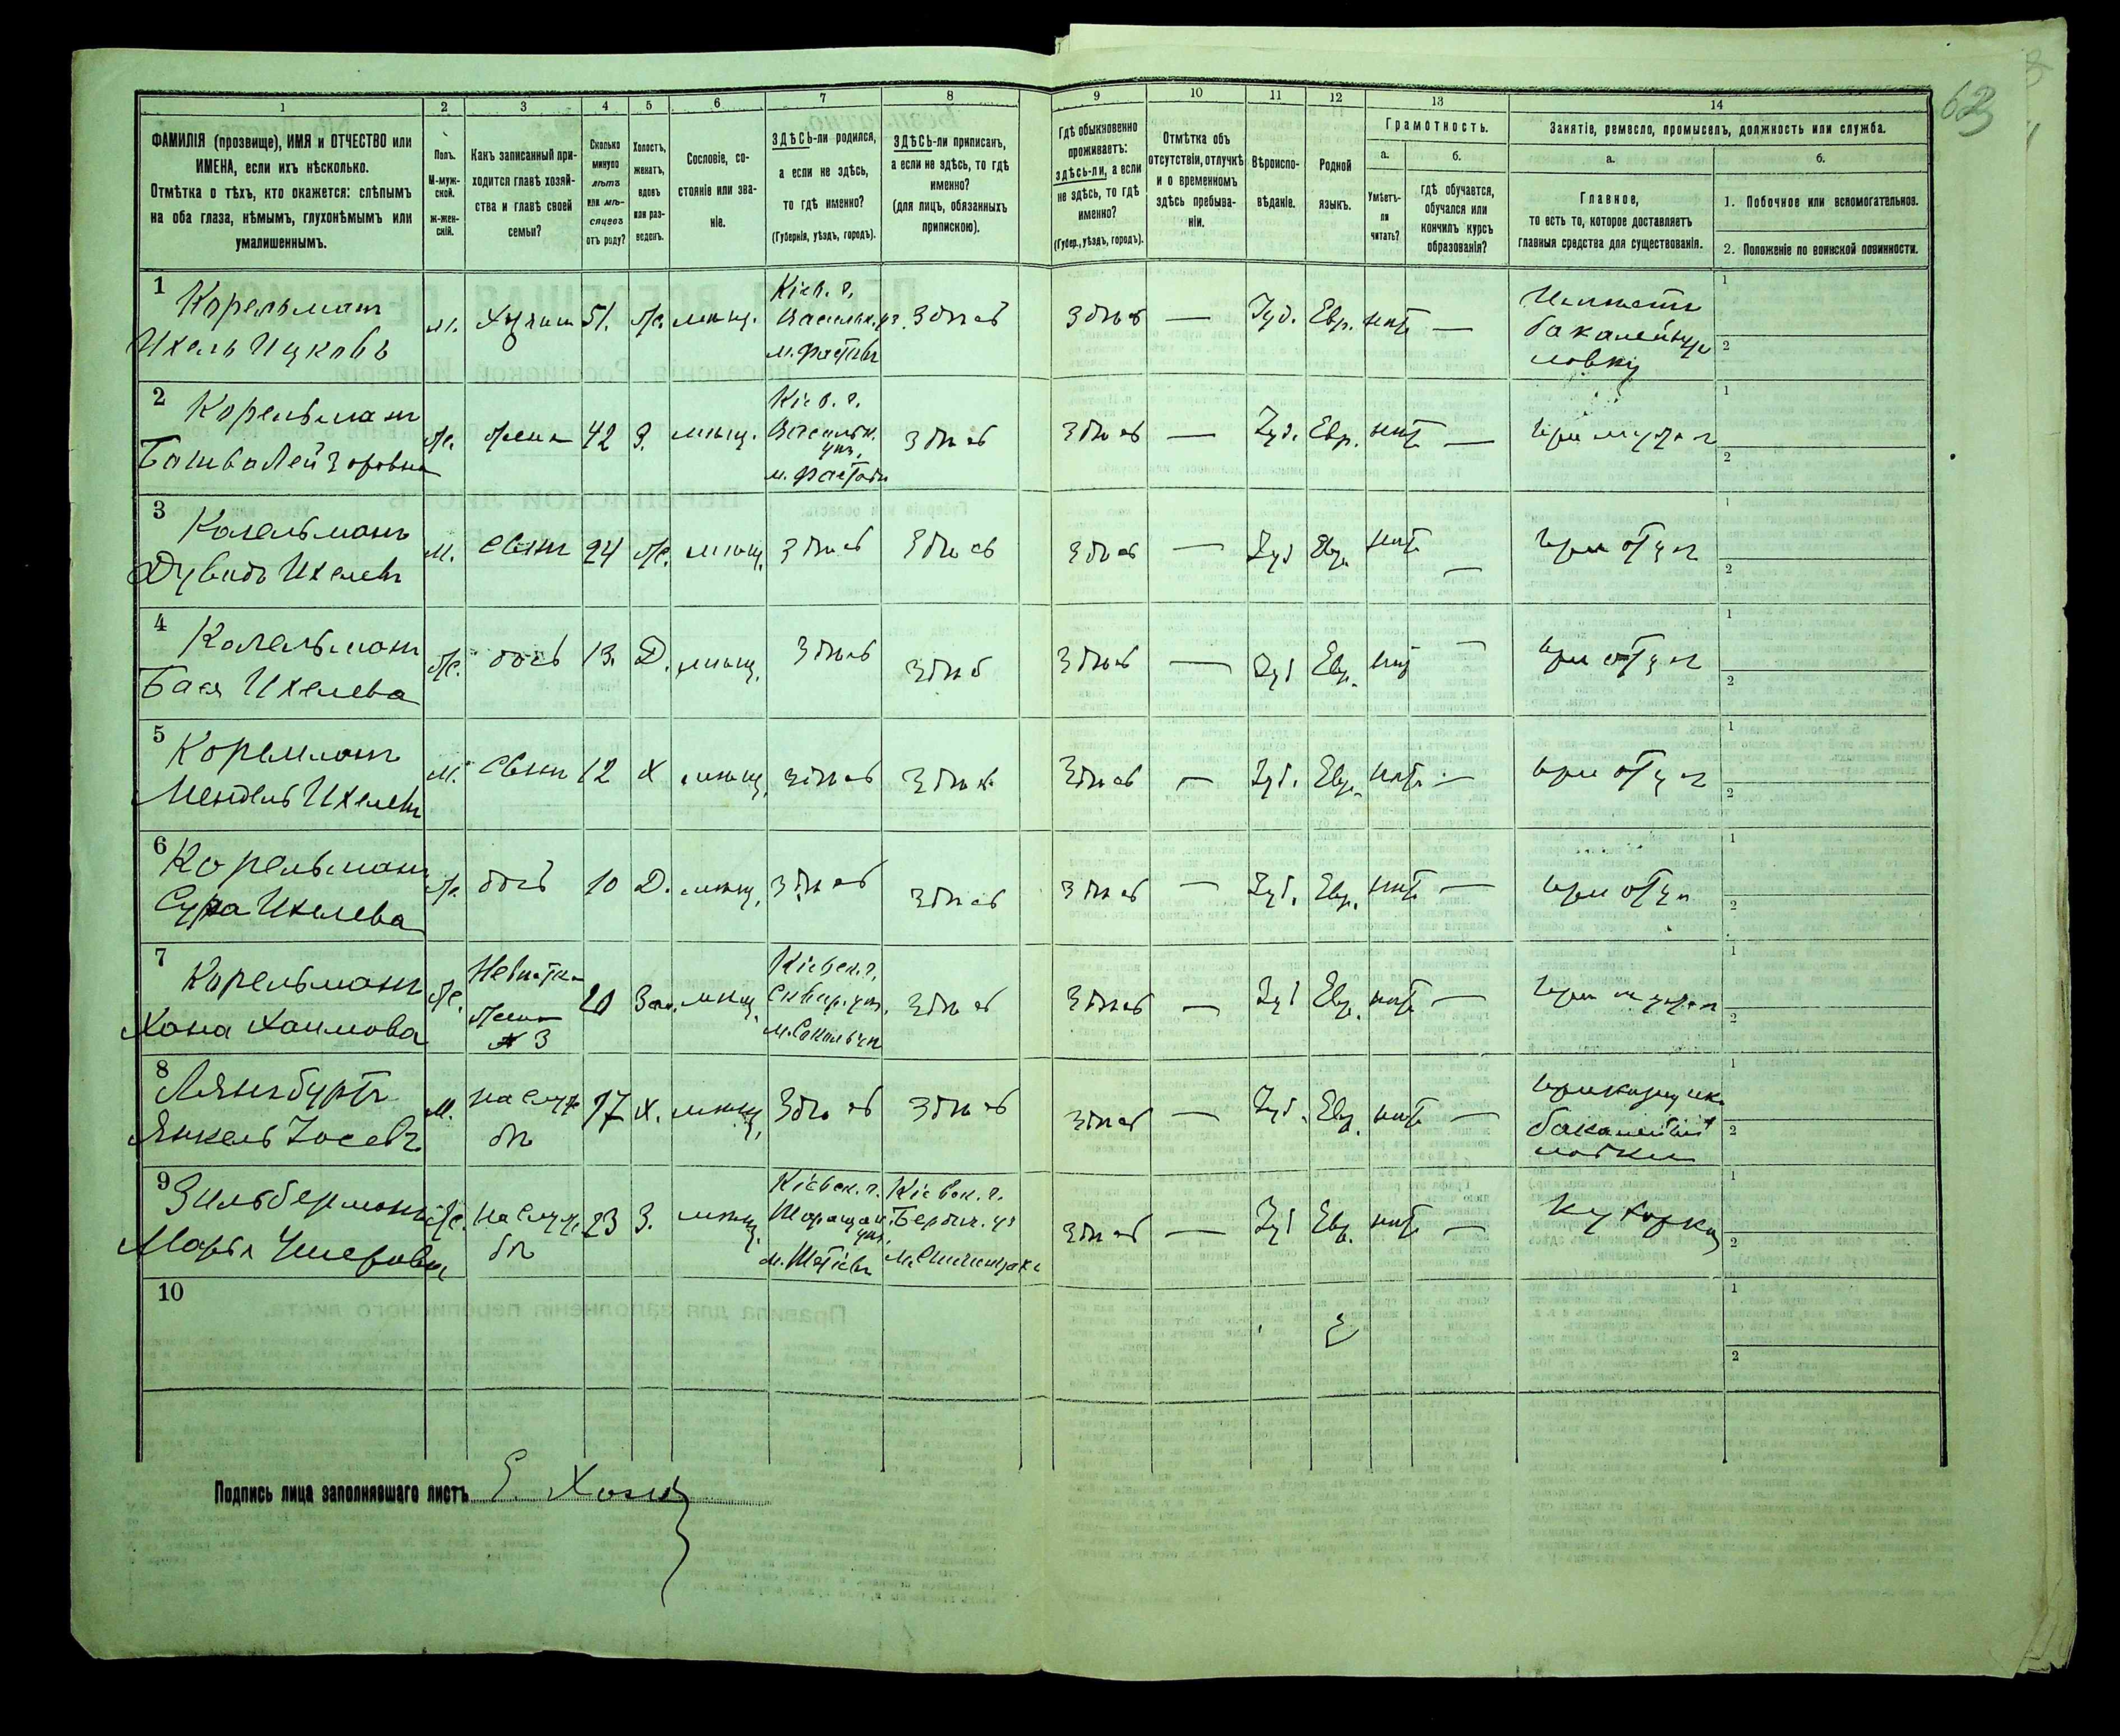 63
1 2 3 4 5 6 7 8 9 10 11 12 13 14
ФАМИЛІЯ (прозвище), ИМЯ и ОТЧЕСТВО или
ИМЕНА, если ихъ нѣсколько.
Отмѣтка о тѣхъ, кто окажется: слѣпымъ
на оба глаза, нѣмымъ, глухонѣмымъ или
умалишеннымъ.
Полъ.
М-муж-
ской.
ж-жен-
скій.
Какъ записанный при-
ходится главѣ хозяй-
ства и главѣ своей
семьи?
Сколько
минуло
лѣтъ
или мѣ-
сяцевъ
отъ роду?
Холостъ,
женатъ,
вдовъ
или раз-
веденъ.
Сословіе, со-
стояніе или зва-
ніе.
ЗДѢСЬ-ли родился,
а если не здѣсь,
то гдѣ именно?
(Губернія, уѣздъ, городъ).
ЗДѢСЬ-ли приписанъ,
а если не здѣсь, то гдѣ
именно?
(для лицъ, обязанныхъ
припискою).
Гдѣ обыкновенно
проживаетъ:
здѣсь-ли, а если
не здѣсь, то гдѣ
именно?
(Губер., уѣздъ, городъ).
Отмѣтка объ
отсутствіи, отлучкѣ
и о временномъ
здѣсь пребыва-
ніи.
Вѣроиспо-
вѣданіе.
Родной
языкъ.
Грамотность.
а.
Умѣетъ-
ли
читать?
б.
гдѣ обучается,
обучался или
кончилъ курсъ
образованія?
Занятіе, ремесло, промыселъ, должность или служба.
а.
Главное,
то есть то, которое доставляетъ
главныя средства для существованія.
б.
1. Побочное или вспомогательное.
2. Положеніе по воинской повинности.
1 Корельман м. 51. ж. мѣщ. Кіев. г. Васильк. уз. м. Фастовъ здѣсь здѣсь — Іуд. Евр. нѣтъ —
Ихель Ицковъ
бакалейную
лавку
1
2
2 Корельман ж. жена 42 З. мѣщ. Кіев. г. Васильк. уѣз. м. Фастовъ здѣсь здѣсь — Іуд. Евр. нѣтъ — при мужѣ
1
2
3 Корельманъ м. сынъ 24 ж. мѣщ. здѣсь здѣсь здѣсь — Іуд Евр. нѣтъ — при отцѣ
Ихелевъ
1
2
4 Корельман ж. дочь 13. Д. мѣщ. здѣсь здѣсь здѣсь — Іуд Евр. нѣтъ — при отцѣ
Бася Ихелева
1
2
5 Корельман м. сынъ 12 Х мѣщ. здѣсь здѣсь здѣсь — Іуд. Евр. нѣтъ — при отцѣ
Мендель Ихелевъ
1
2
6 Корельман ж. дочь 10 Д. мѣщ. здѣсь здѣсь здѣсь — Іуд. Евр. нѣтъ — при отцѣ
Сура Ихелева
1
2
7 Корельман ж. Невѣстка жена № 3 20 Зам. мѣщ. Кіевск. г. Сквир. уѣз. здѣсь здѣсь — Іуд Евр. нѣтъ — при мужѣ
Хана Хаимова
1
2
8 м. на служ бѣ 17 Х. мѣщ. здѣсь здѣсь здѣсь — Іуд. Евр. нѣтъ — прикащикъ
Янкель Іосевъ
бакалейной
лавки
1
2
9 Зильберманъ ж. на служ бѣ 23 З. мѣщ. Кіевск. г. Кіевск. г. Бердич. уз здѣсь — Іуд Евр. нѣтъ — Кухарка
1
2
10
1
2
Подпись лица заполнявшаго листъ